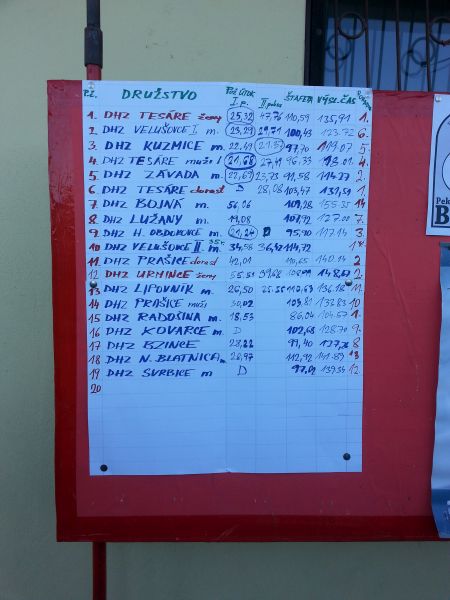 P.Č. DRUŽSTVO POŽ. ÚTOK I. p. II. pokus ŠTAFETA VÝSL. ČAS
1. DHZ TESÁRE ženy 25,32 47,76 110,59 135,91 1.
2. DHZ VELUŠOVCE I m. 23,29 29,71 100,43 123.72 6.
3. DHZ KUZMICE m. 22.41 21.37 97.70 119.07 5.
4. DHZ TESÁRE muži I 21,68 27,49 96.33 4.
5 DHZ ZÁVADA m. 22,69 23,73 91,58 114.27 2.
6 DHZ TESÁRE dorast D 28,08 103,47 1.
7 DHZ BOJNÁ m 56,06 109,28 14
8 DHZ LUŽANY m. 19,08 107,92 127.00 7.
9 DHZ H. OBDOKOVCE m. 21,24 95,90 117.14 3
10 DHZ VELUŠOVCE II m. 35r. 34,58 36,42 114,72
11 DHZ PRAŠICE dorast 42,01 2
12 DHZ URMINCE ženy 55.51 2
13 DHZ LIPOVNÍK m. 26,50 136.18 11
14 DHZ PRAŠICE muži 30,02 103,81 133.83 10
15 DHZ RADOŠINA m. 18,53 86,04 104.57 1.
16 DHZ KOVARCE m. D 102,68 128.70 9.
17 DHZ BZINCE m. 99,40 8.
18 DHZ N. BLATNICA m. 28,97 112,92 141.89 13
19 DHZ SVRBICE m. D 12.
20